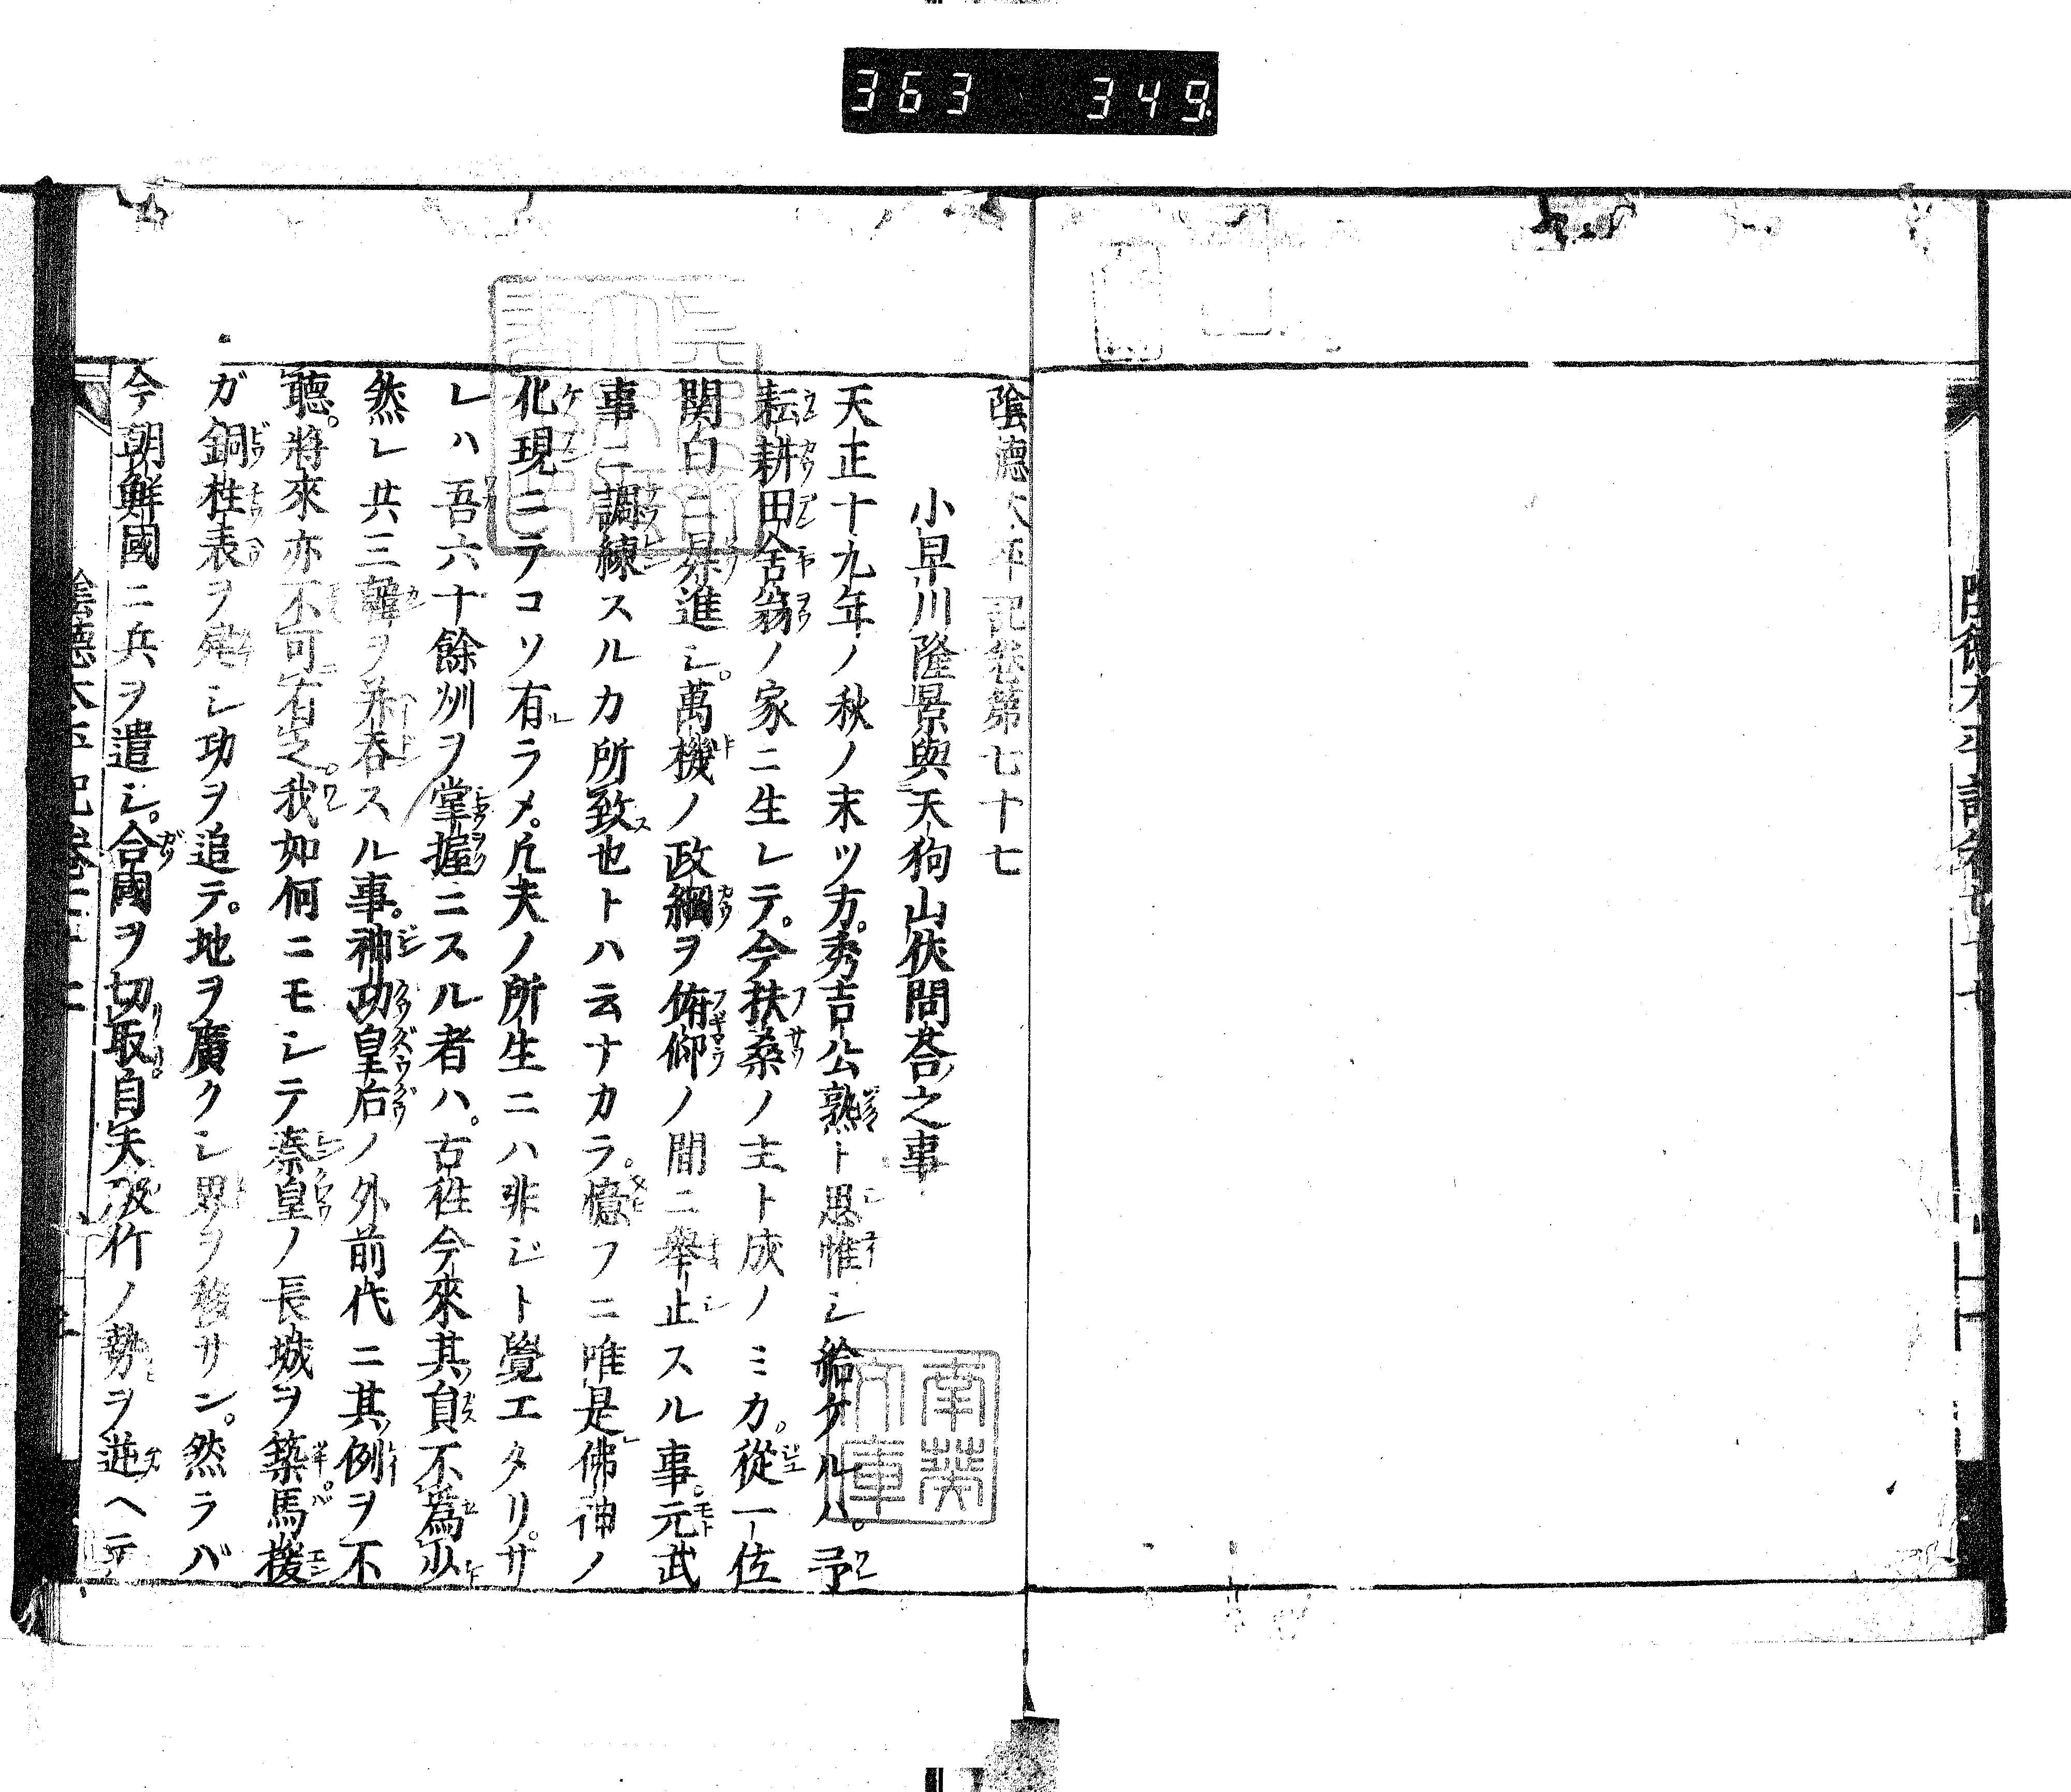 363 349
陰德太平記卷第七十七
小早川隆景與天狗山伏問荅之事
天正十九年ノ秋ノ末ツ方。秀吉公熟ト思惟シ給ケルハ。予
耘耕田舍翁ノ家ニ生レテ。今扶桑ノ主ト成ノミカ。從一位
関白ニ昇進シ。萬機ノ政綱ヲ俯仰ノ間ニ舉止スル事。元武
事ニ調練スルカ所致也トハ云ナカラ。憶フニ唯是佛神ノ
化現ニテコソ有ラメ。凡夫ノ所生ニハ非ジト覺エタリ。サ
レハ吾六十餘州ヲ掌握ニスル者ハ。古徃今來其負不爲𪜈
然レ共三韓ヲ并呑スル事。神功皇后ノ外前代ニ其例ヲ不
聽。將來亦不可有之。我如何ニモシテ秦皇ノ長城ヲ築。馬援
ガ銅柱表ヲ建シ功ヲ追テ。地ヲ廣クシ界ヲ移サン。然ラバ
今朝鮮國ニ兵ヲ遣シ。合國ヲ切取。自夫破竹ノ勢ヲ遊ヘテ
南葵
文庫